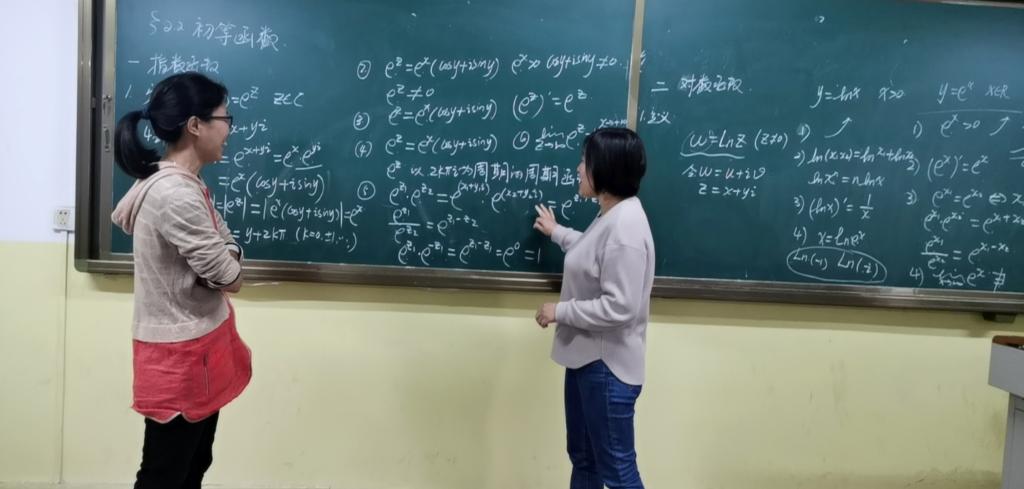 §2.2 初等函数
一 指数函数
1.
=e^z z∈C
x+yi
=e^{x+yi}=e^x e^{yi}
=e^x(cosy+isiny)
=|e^z|=|e^x(cosy+isiny)|=e^x
=y+2kπ (k=0,±1…)
② e^z=e^x(cosy+isiny) e^x>0 cosy+isiny≠0
e^z≠0
③ e^z=e^x(cosy+isiny) (e^z)'=e^z
④ e^z=e^x(cosy+isiny) ⑥ lim e^z
e^z 以2kπi为周期的周期函
⑤ e^{z_1}·e^{z_2}=
e^{z_1}/e^{z_2}=e^{z_1-z_2}
=e^0=1
二 对数函数
定义
w=Lnz (z≠0)
令w=u+iv
z=x+yi
y=lnx x>0
1)
2) ln(x_1x_2)=lnx_1+lnx_2
lnx^n=nlnx
3) (lnx)'=1/x
4) x=lne^x
Ln(-1) Ln(-2)
y=e^x x∈R
1) e^x>0
2) (e^x)'=e^x
3) e^{x_1}=e^{x_2} ⇔ x
e^{x_1}·e^{x_2}=e^{x_1+x_2}
e^{x_1}/e^{x_2}=e^{x_1-x_2}
4) lim e^x